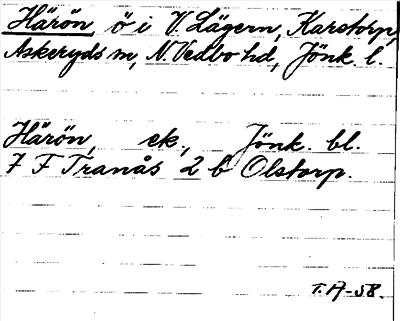 Härön, ö i V. Lägern, Karstorp,
Askeryds sn, N. Vedbo hd, Jönk. l.
Härön, ek., Jönk. bl.
7 F Tranås 2 b Olstorp.
T. A-58.